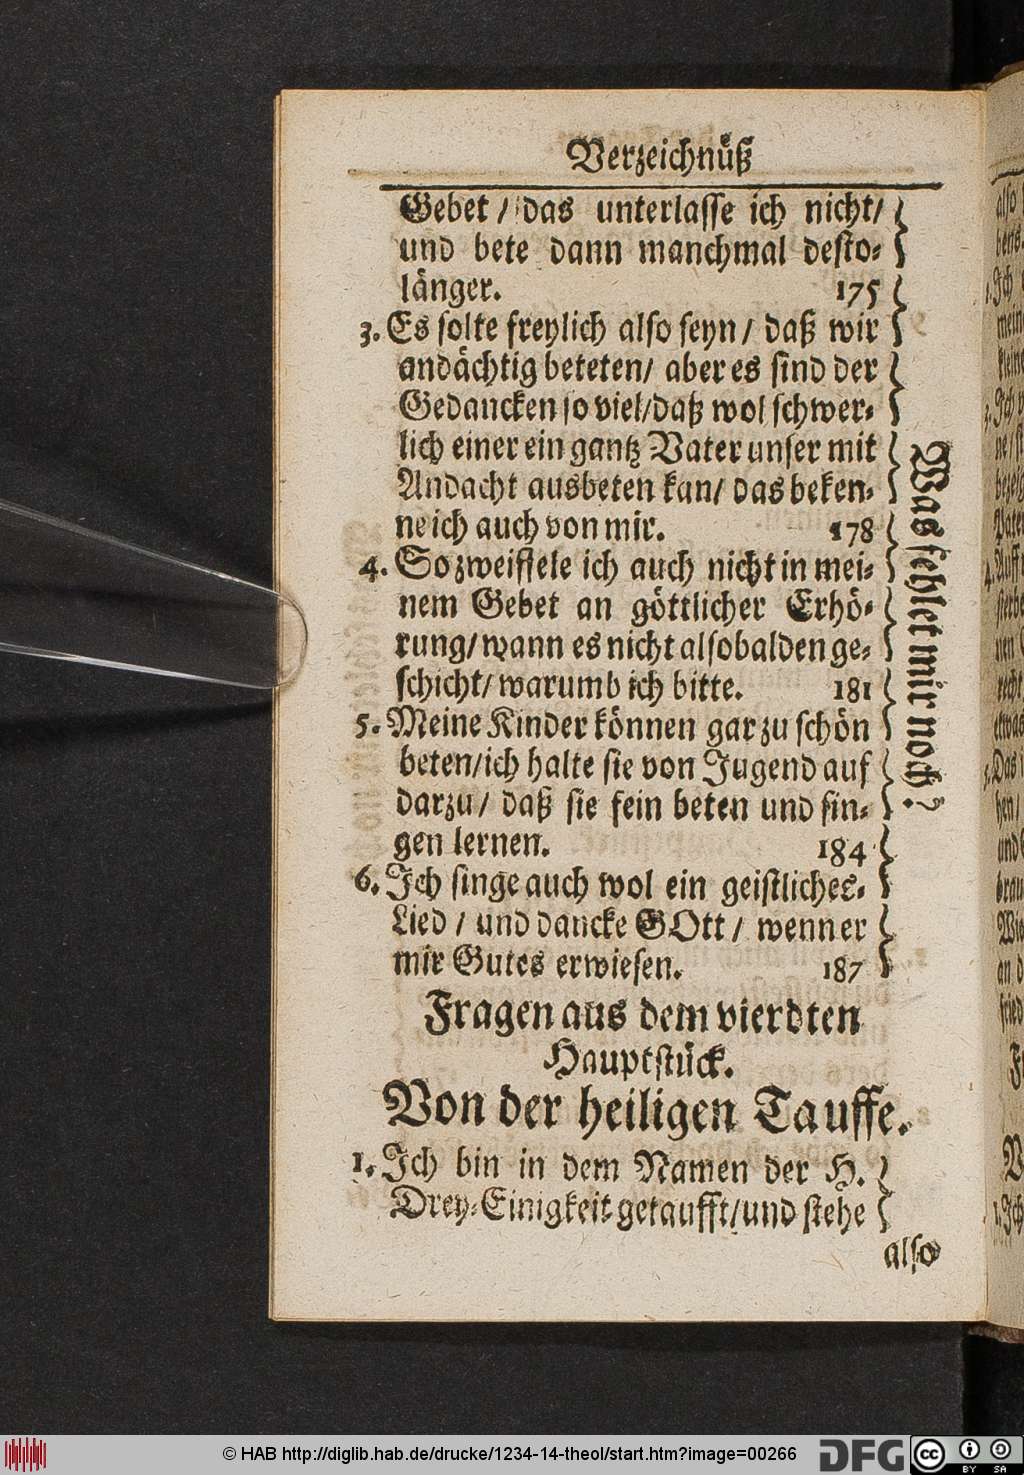 Verzeichnüß
Gebet / das unterlasse ich nicht/
und bete dann manchmal desto-
länger. 175
3. Es solte freylich also seyn / daß wir
andächtig beteten/ aber es sind der
Gedancken so viel/daß wol schwer-
lich einer ein gantz Vater unser mit
Andacht ausbeten kan/ das beken-
ne ich auch von mir. 178
4. So zweiffele ich auch nicht in mei-
nem Gebet an göttlicher Erhö-
rung/ wann es nicht alsobalden ge-
schicht/ warumb ich bitte. 181
5. Meine Kinder können gar zu schön
beten/ich halte sie von Jugend auf
darzu / daß sie fein beten und sin-
gen lernen. 184
6. Ich singe auch wol ein geistliches-
Lied / und dancke GOtt / wenn er
mir Gutes erwiesen. 187
Was fehlet mir noch?
Fragen aus dem vierdten
Hauptstück.
Von der heiligen Tauffe.
1. Ich bin in dem Namen der H.
Drey-Einigkeit getaufft/und stehe
also
© HAB http://diglib.hab.de/drucke/1234-14-theol/start.htm?image=00266
DFG
cc
BY SA